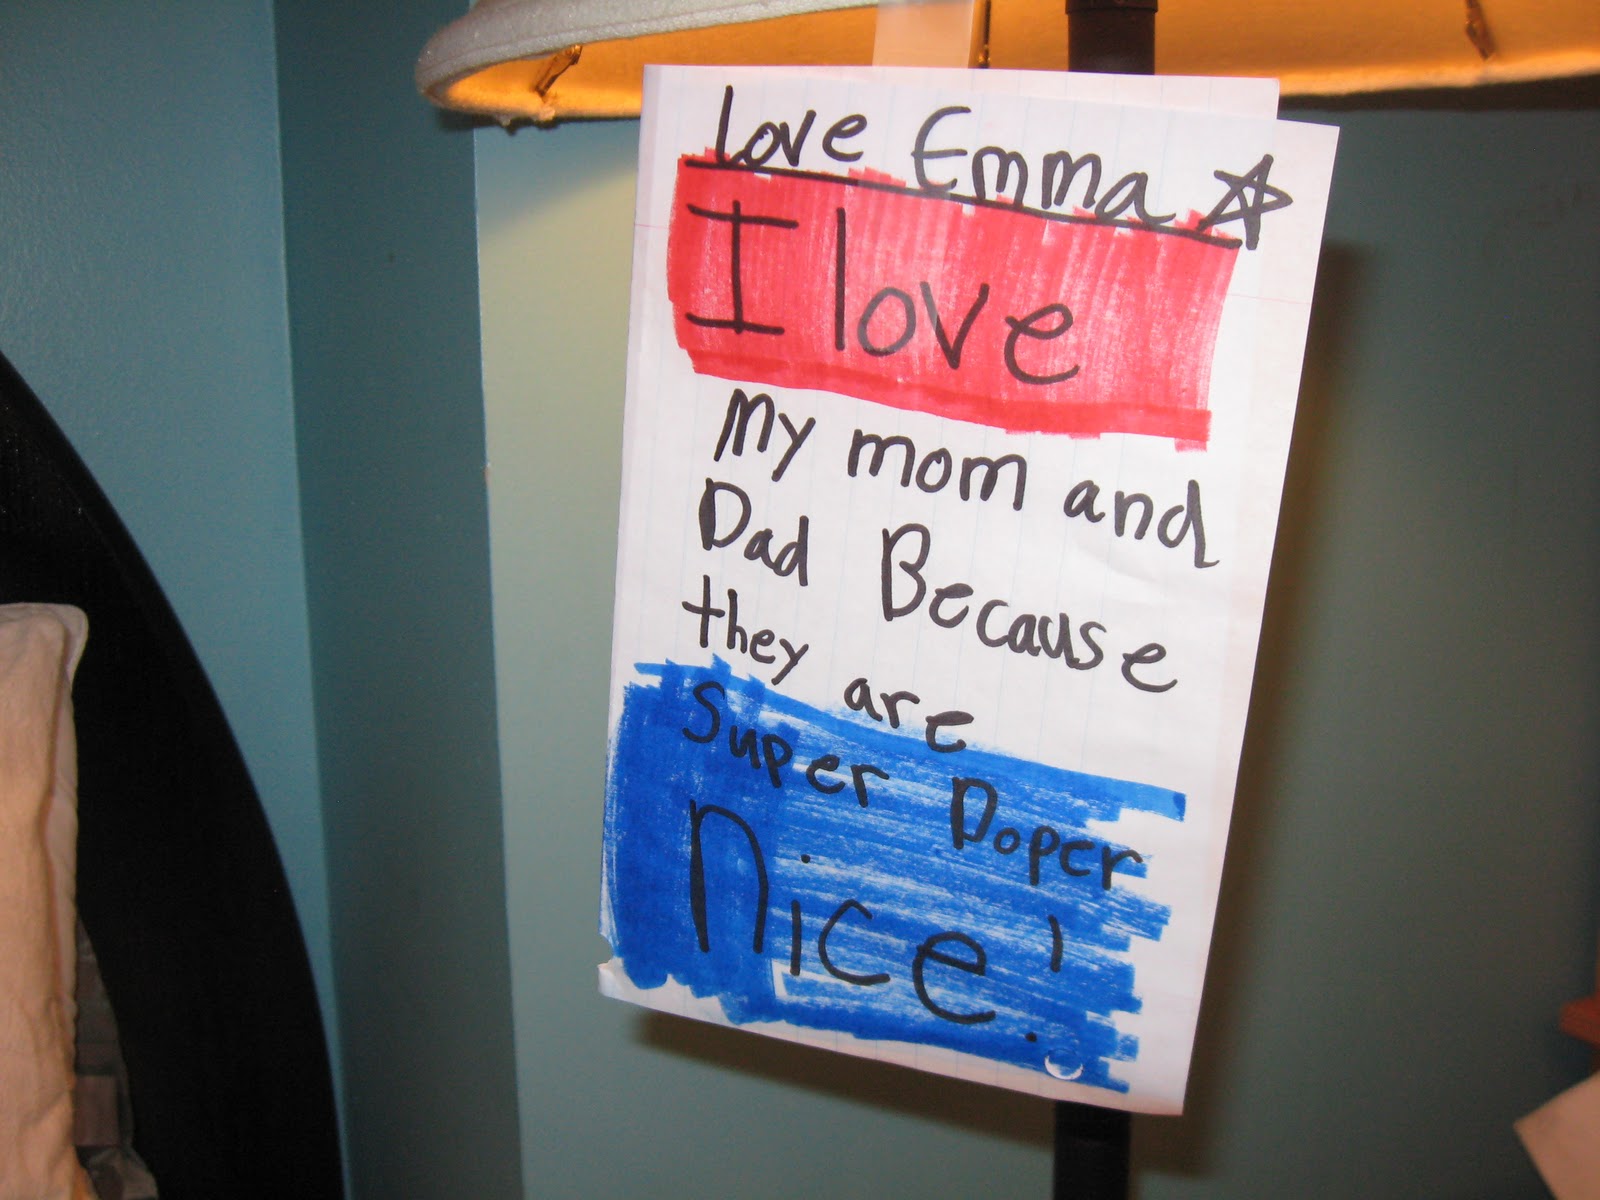 love Emma
I love
My mom and
Dad Because
they are
Super Doper
Nice!